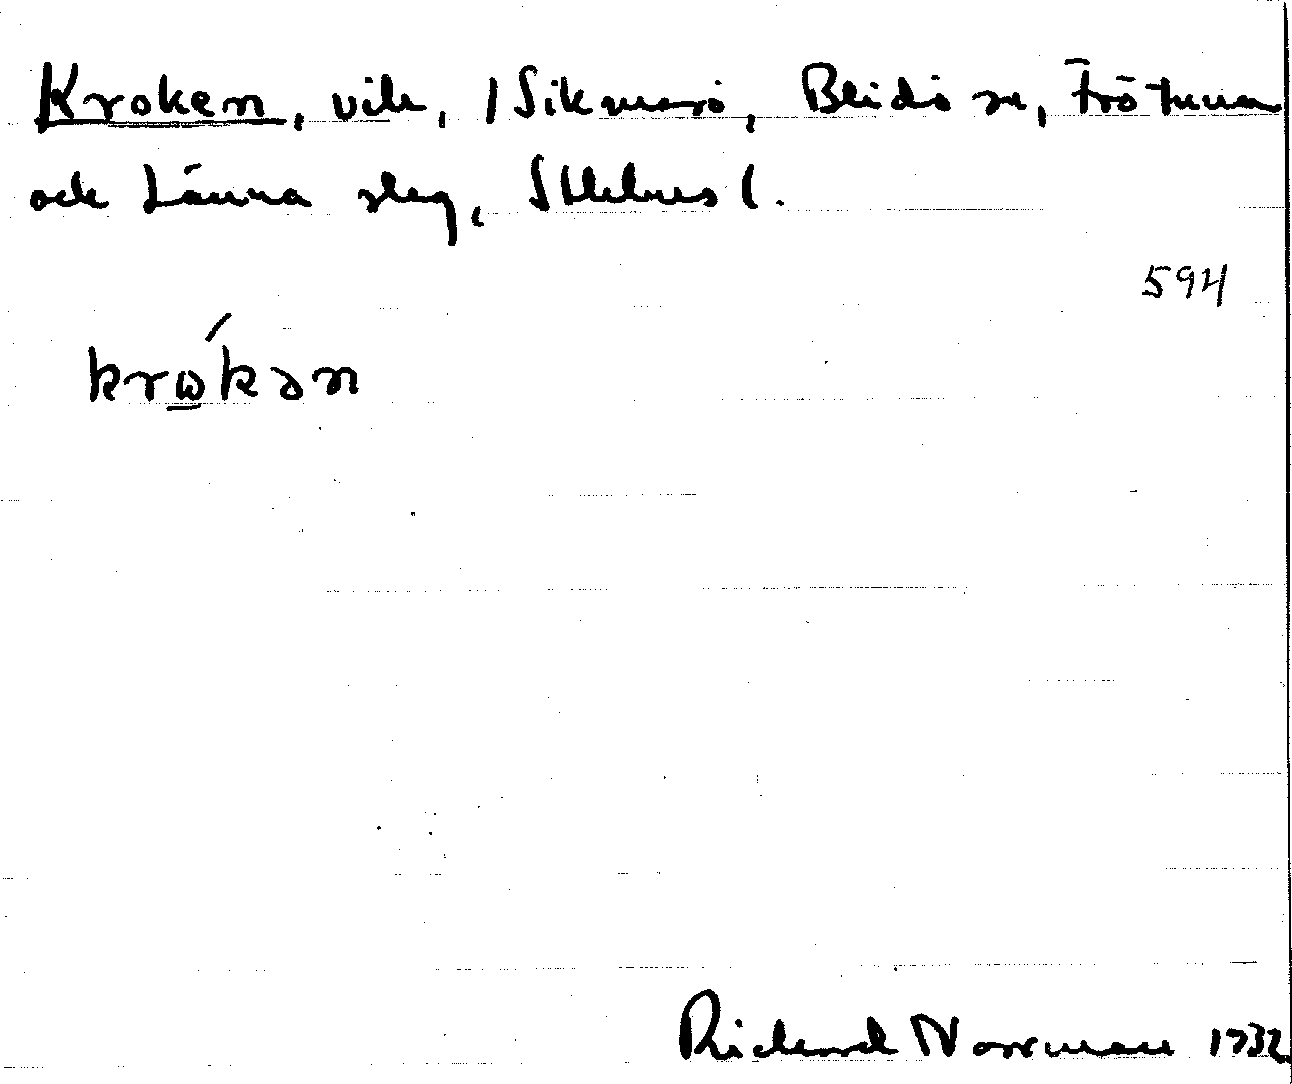 Kroken, vik, i Sikmarö, Blidö sn, Frötuna
och Länna slg, Sthlms l.
594
krώ̲kən
Rickard Norrman 1932